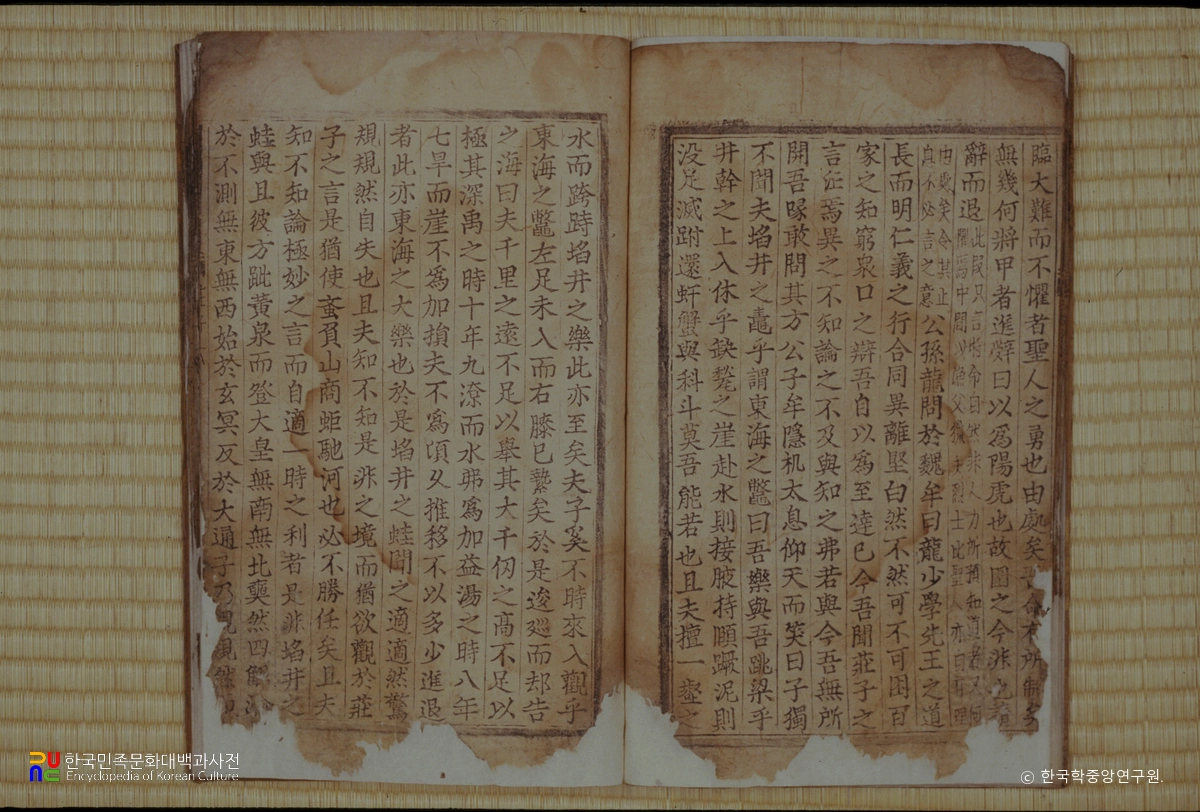 臨大難而不懼者聖人之勇也由處矣吾命有所制矣
無幾何將甲者進辭曰以爲陽虎也故圍之今非也請
辭而退
公孫龍問於魏牟曰龍少學先王之道
長而明仁義之行合同異離堅白然不然可不可困百
家之知窮衆口之辯吾自以爲至達已今吾聞莊子之
言茫焉異之不知論之不及與知之弗若與今吾無所
開吾喙敢問其方公子牟隱机太息仰天而笑曰子獨
不聞夫埳井之鼃乎謂東海之鼈曰吾樂與吾跳梁乎
井幹之上入休乎缺甃之崖赴水則接腋持頤蹶泥則
没足滅跗還虷蟹與科斗莫吾能若也且夫擅一壑之
水而跨跱埳井之樂此亦至矣夫子奚不時來入觀乎
東海之鼈左足未入而右膝已縶矣於是逡廵而却告
之海曰夫千里之遠不足以舉其大千仞之高不足以
極其深禹之時十年九潦而水弗爲加益湯之時八年
七旱而崖不爲加損夫不爲頃久推移不以多少進退
者此亦東海之大樂也於是埳井之蛙聞之適適然驚
規規然自失也且夫知不知是非之境而猶欲觀於莊
子之言是猶使蚉負山商蚷馳河也必不勝任矣且夫
知不知論極妙之言而自適一時之利者是非埳井之
蛙與且彼方跐黃泉而登大皇無南無北奭然四解淪
於不測無東無西始於玄冥反於大通子乃規規然
한국민족문화대백과사전
Encyclopedia of Korean Culture
© 한국학중앙연구원.